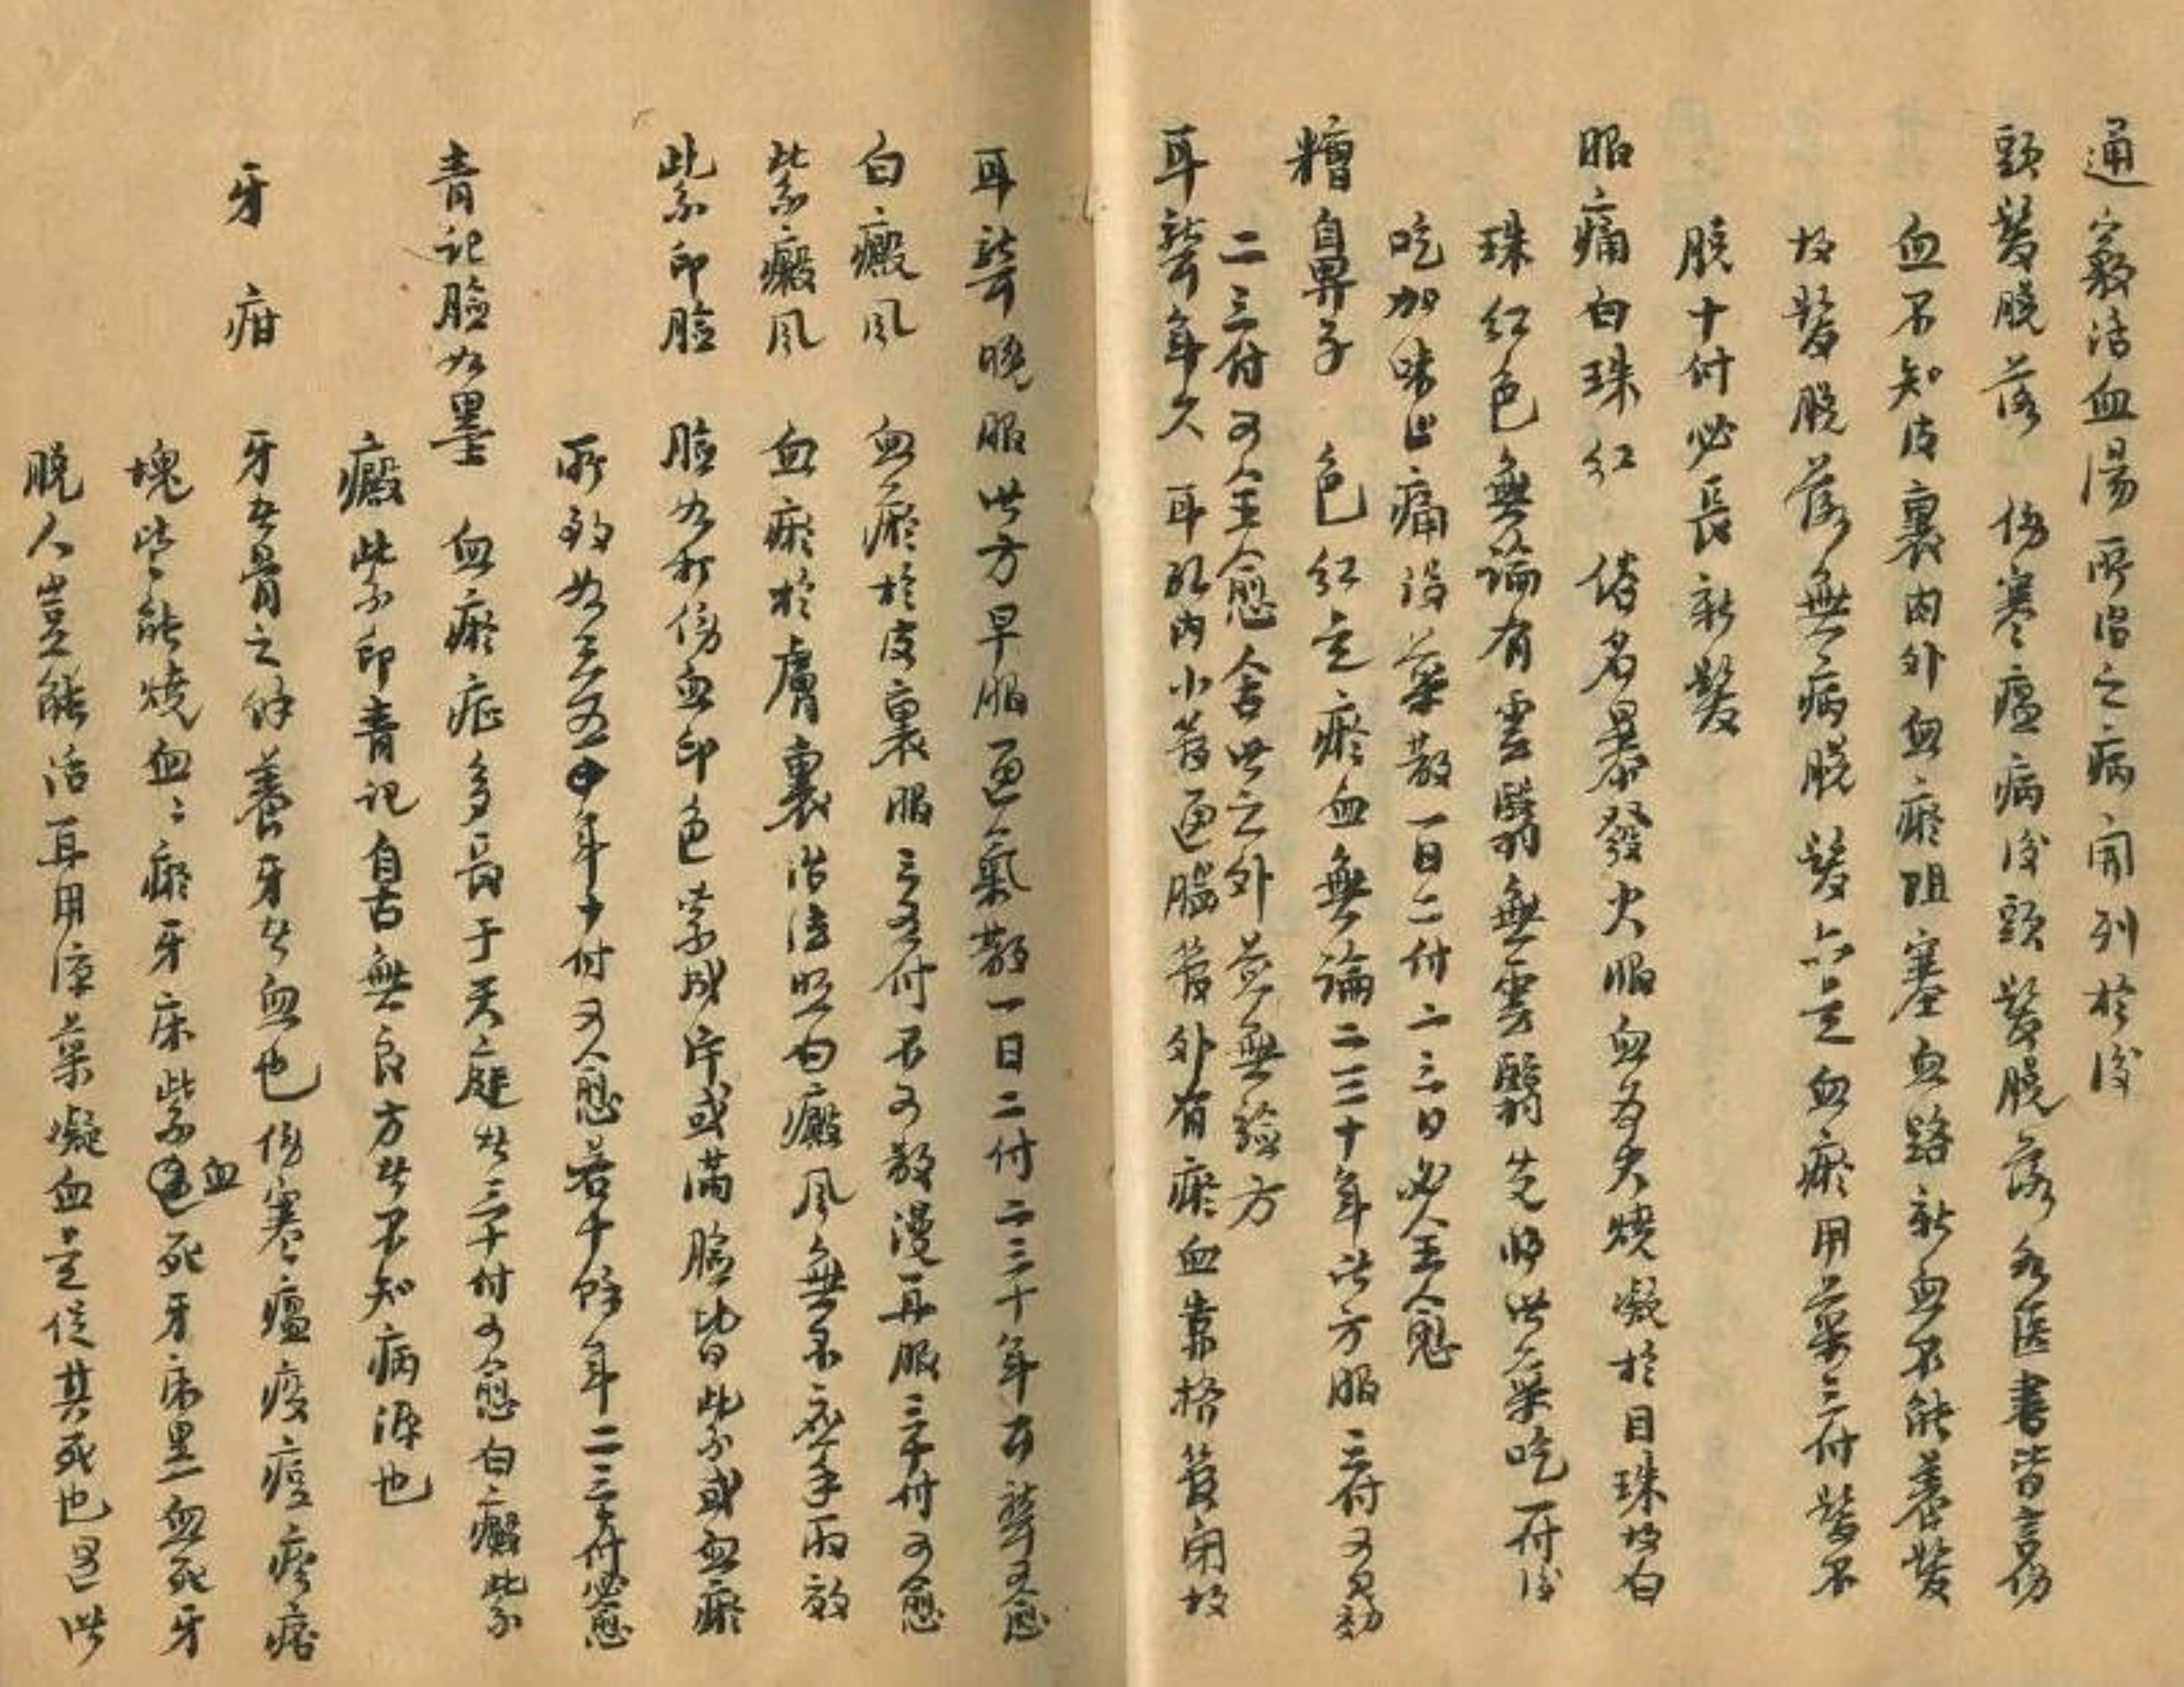 通竅活血湯所治之病開列於後
頭髮脫落　傷寒瘟病後頭髮脫落各医書皆言伤
血不知皮裏肉外血瘀阻塞血路新血不能養髮
故髮脫落無病脫髮亦是血瘀用藥三付髮不
脫十付必長新髮
眼痛白珠紅　俗名暴發火眼血為火燒凝於目珠故白
珠红色無論有雲翳無雲翳先將此藥吃一付後
吃加味止痛没藥散一日二付二三日必全愈
糟自鼻子　色红是瘀血無論二三十年此方服三付可見効
二三付可全愈舍此之外並無验方
耳聾年久　耳孔内小管通腦管外有瘀血靠挤管闭故
耳聾晚服此方早服通氣散一日二付二三十年耳聾可愈
白癜风　血瘀於皮裏服三五付不可散漫再服三十付可愈
紫癜风　血瘀於膚裏治法照白癜风無不應手而效
紫印脸　脸如打伤血印色紫成片或滿脸皆紫或血瘀
所致如三五年十付可愈若十餘年二三十付必愈
青记脸如墨　血瘀症多長于天庭者三十付可愈白癜紫
癜紫印青记自古無良方者不知病源也
牙疳　牙者骨之馀養牙者血也伤寒瘟疫痘疹痞
塊皆能燒血血瘀牙床紫血死牙床黑血死牙
脱人豈能活耳用凉藥凝血是促其死也遇此